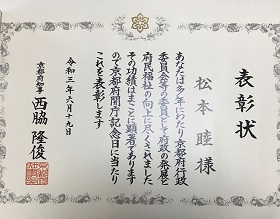 表彰状
松本 睦 様
あなたは多年にわたり京都府行政
委員会等の委員として府政の発展と
府民福祉の向上に尽くされました
その功績はまことに顕著であります
ので京都府開庁記念日に当たり
これを表彰します
令和三年六月十九日
京都府知事 西脇隆俊